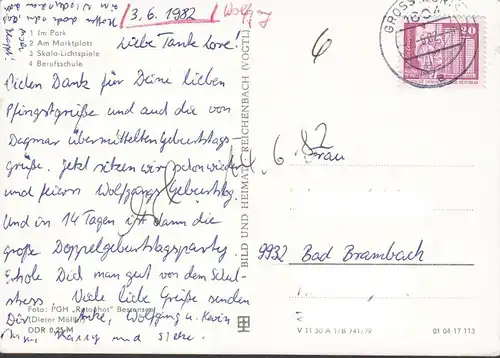 3.6.1982 Wolfgang
1 Im Park
2 Am Marktplatz
3 Skala-Lichtspiele
4 Berufsschule
Liebe Tante Lore!
Vielen Dank für Deine lieben
Pfingstgrüße und auch die von
Dagmar übermittelten Geburtstags-
grüße. Jetzt sitzen wir schon wieder
und feiern Wolfgangs Geburtstag.
Und in 14 Tagen ist dann die
große Doppelgeburtstagsparty.
Erhole Dich man gut von dem Schul-
stress. Viele liebe Grüße senden
Dir Antje, Wolfgang u. Kevin
Foto: PGH "Rotophot" Bestensee
(Dieter Möller)
DDR 0,25 M
BILD UND HEIMAT REICHENBACH (VOGTL)
V 11 50 A 1/B 741/79
01 04 17 113
GROSS
1604
20
6
14.6.82
Frau
9932 Bad Brambach